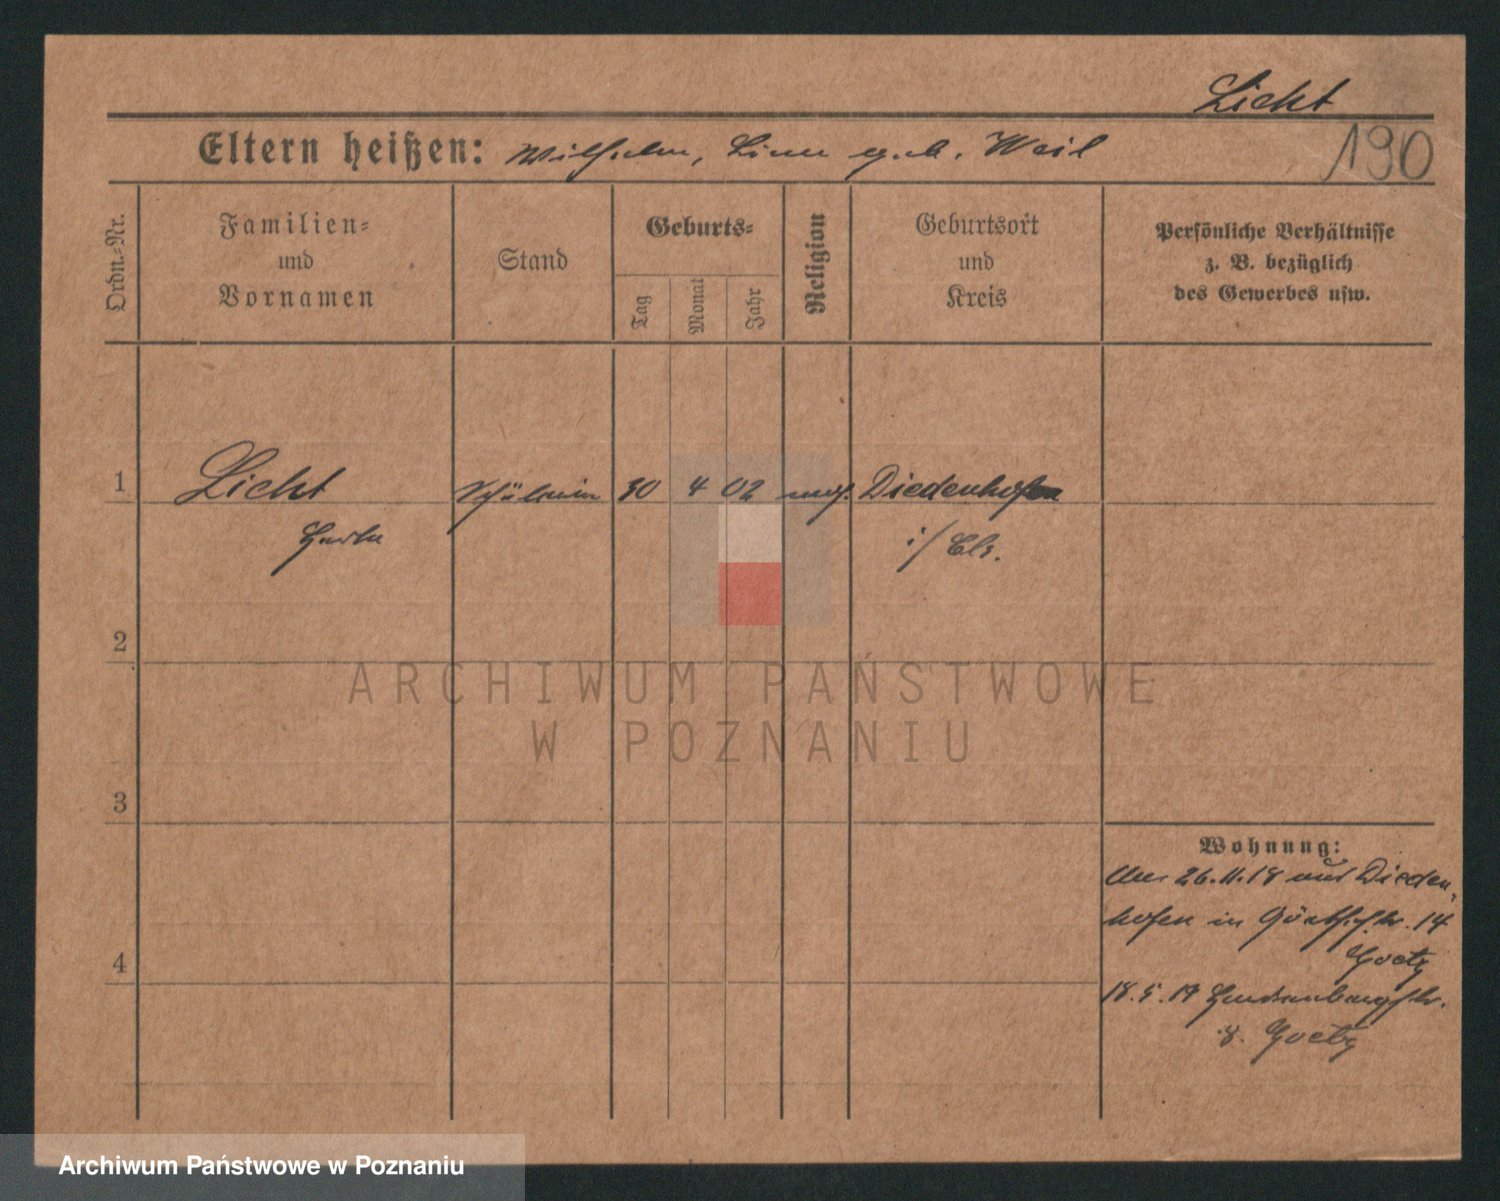 Licht
Eltern heißen: Wilhelm, geb. Weil
190
Ordn.-Nr.
Familien-
und
Vornamen
Stand
Geburts-
Tag
Monat
Jahr
Religion
Geburtsort
und
Kreis
Persönliche Verhältnisse
z. B. bezüglich
des Gewerbes usw.
1
Licht
Schülerin
30
4
02
Diedenhofen
Herta
i/ Els.
2
3
4
Wohnung:
26.11.18 aus Dieden-
hofen in 14
Goetz
18.5.19
8. Goetz
ARCHIWUM PAŃSTWOWE
W POZNANIU
Archiwum Państwowe w Poznaniu